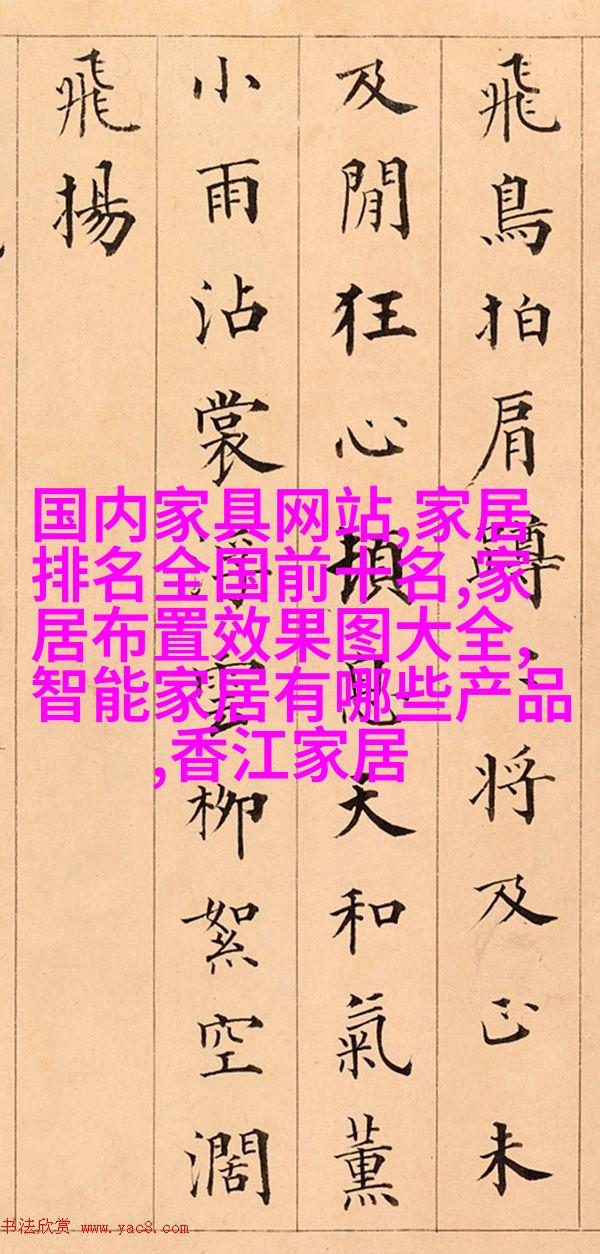 飛鳥拍肩將及已未
及閒狂心天和氣薰
小雨沾裳浮雲柳絮空濶
飛揚
国内家具网站,家居
排名全国前十名,家
居布置效果图大全,
智能家居有哪些产品
,香江家居
书法欣赏 www.yac8.com